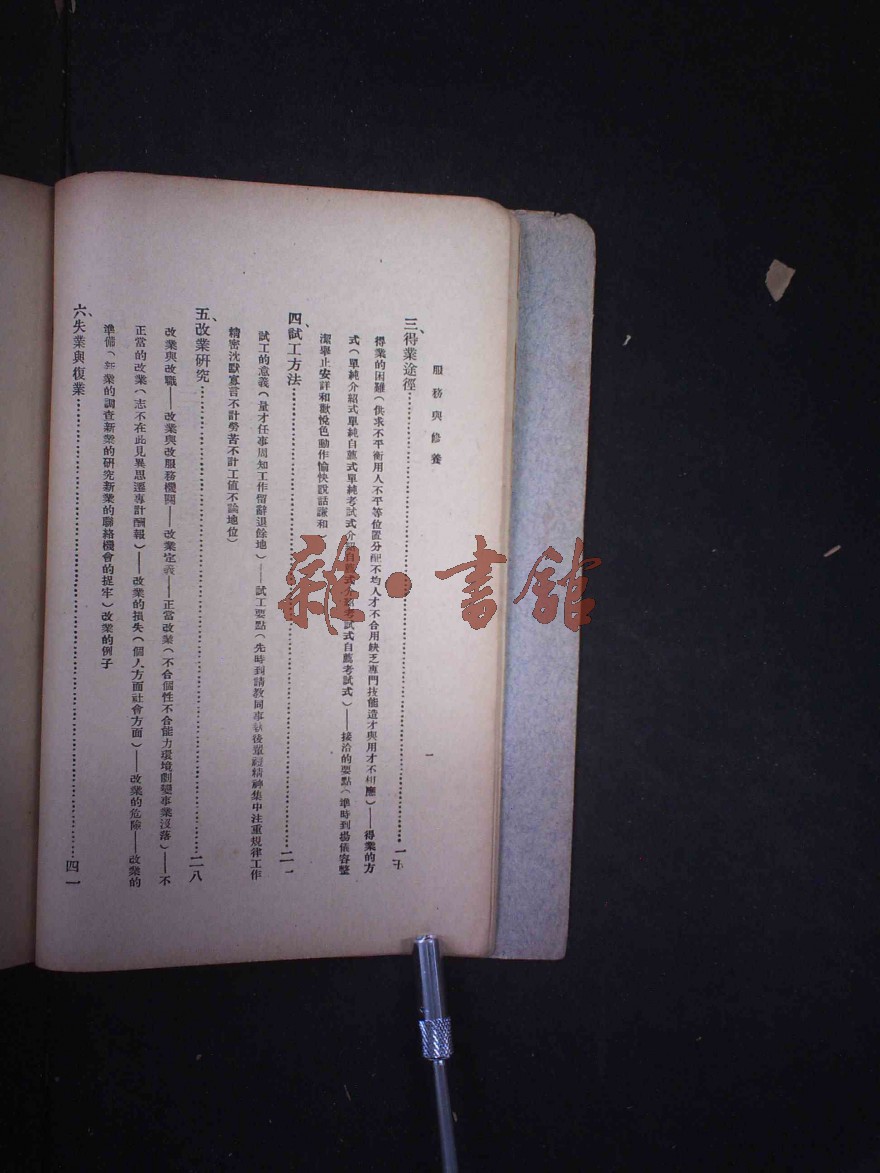 服務與修養
一
三、得業途徑……………………一五
得業的困難(供求不平衡用人不平等位置分配不均人才不合用缺乏專門技能造才與用才不相應)——得業的方
式(單純介紹式單純自薦式單純考試式介紹自薦式介紹考試式自薦考試式)——接洽的要點(準時到場儀容整
潔舉止安詳和歡悅色動作愉快說話謙和
四、試工方法……………………二一
試工的意義(量才任事周知工作留辭退餘地)——試工要點(先時到請教同事 精神集中注重規律工作
精密沈默寡言不計勞苦不計工值不論地位)
五、改業研究……………………二八
改業與改職——改業與改服務機關——改業定義——正當改業(不合個性不合能力環境劇變事業沒落)——不
正當的改業(志不在此見異思遷專計酬報)——改業的損失(個人方面社會方面)——改業的危險——改業的
準備(新業的調查新業的研究新業的聯絡機會的捉牢)改業的例子
六、失業與復業……………………四一
雜·書館